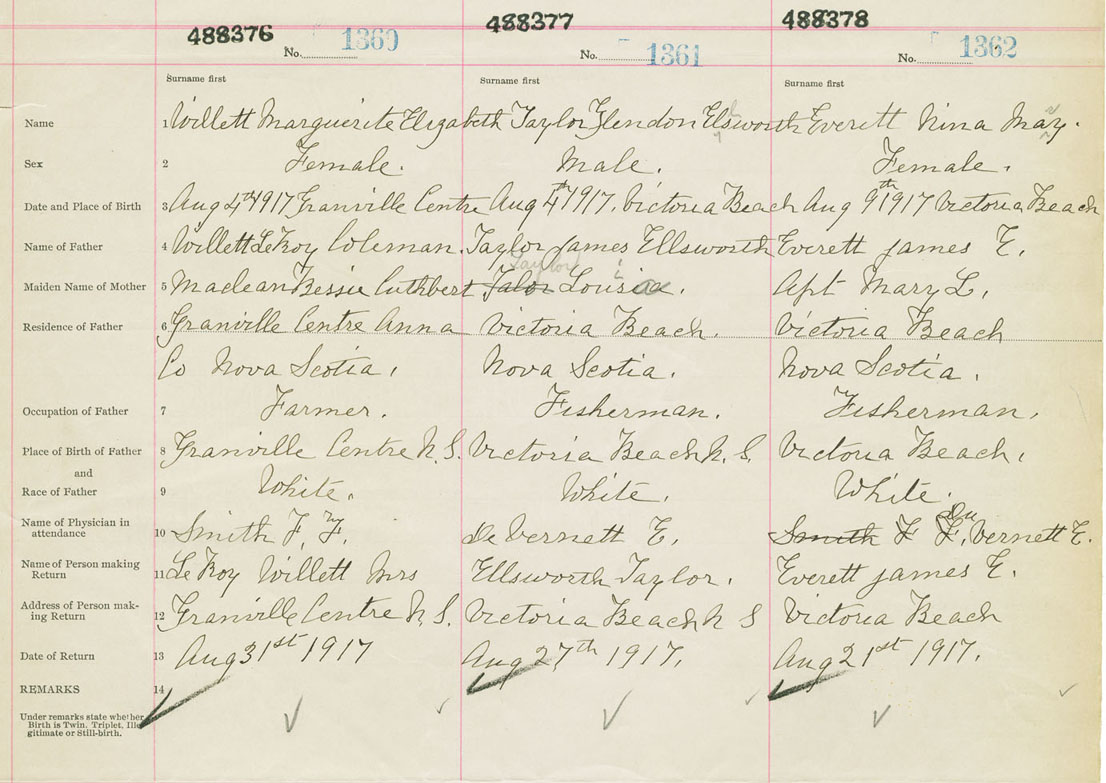 488376 488377 488378
No. 1360 No. 1361 No. 1362
Surname first Surname first Surname first
Name 1 Willett Marguerite Elizabeth Taylor Glendon Elsworth Everett Nina May.
Sex 2 Female. Male. Female.
Date and Place of Birth 3 Aug 4th 1917 Granville Centre Aug 4th 1917. Victoria Beach Aug 9th 1917 Victoria Beach
Name of Father 4 Willett LeRoy Coleman. Taylor James Ellsworth Everett James E.
Taylor
Maiden Name of Mother 5 Maclean Bessie Cuthbert Talor Louisa. Apt Mary L.
Residence of Father 6 Granville Centre Anna Victoria Beach. Victoria Beach
Co Nova Scotia. Nova Scotia. Nova Scotia.
Occupation of Father 7 Farmer. Fisherman. Fisherman.
Place of Birth of Father 8 Granville Centre N.S. Victoria Beach N.S. Victoria Beach.
and
Race of Father 9 White. White. White.
Name of Physician in
attendance 10 Smith F. F. De Vernett E. Smith F F. De Vernett E.
Name of Person making
Return 11 LeRoy Willett Mrs Ellsworth Taylor. Everett James E.
Address of Person mak-
ing Return 12 Granville Centre N.S. Victoria Beach N S Victoria Beach
Date of Return 13 Aug 31st 1917 Aug 27th 1917. Aug 21st 1917.
REMARKS 14
Under remarks state whether
Birth is Twin, Triplet, Ille-
gitimate or Still-birth.